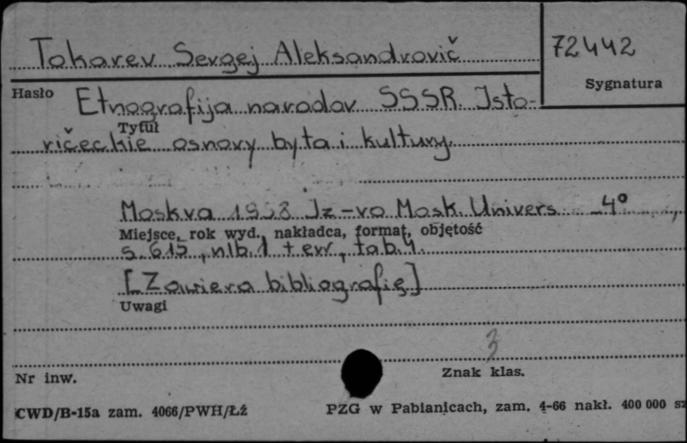 Tokarev Sergej Aleksandrovič
72442
Sygnatura
Hasło
Etnografija narodov SSSR. Isto-
Tytuł
ričeckie osnovy byta i kultury.
Moskva 1958 Iz-vo Mosk. Univers. 4°
Miejsce, rok wyd., nakładca, format, objętość
s. 615, nlb. 1 + err, tab. 4.
[Zawiera bibliografię]
Uwagi
3
Nr inw.
Znak klas.
CWD/B-15a zam. 4066/PWH/Łź
PZG w Pabianicach, zam. 4-66 nakł. 400 000 sz